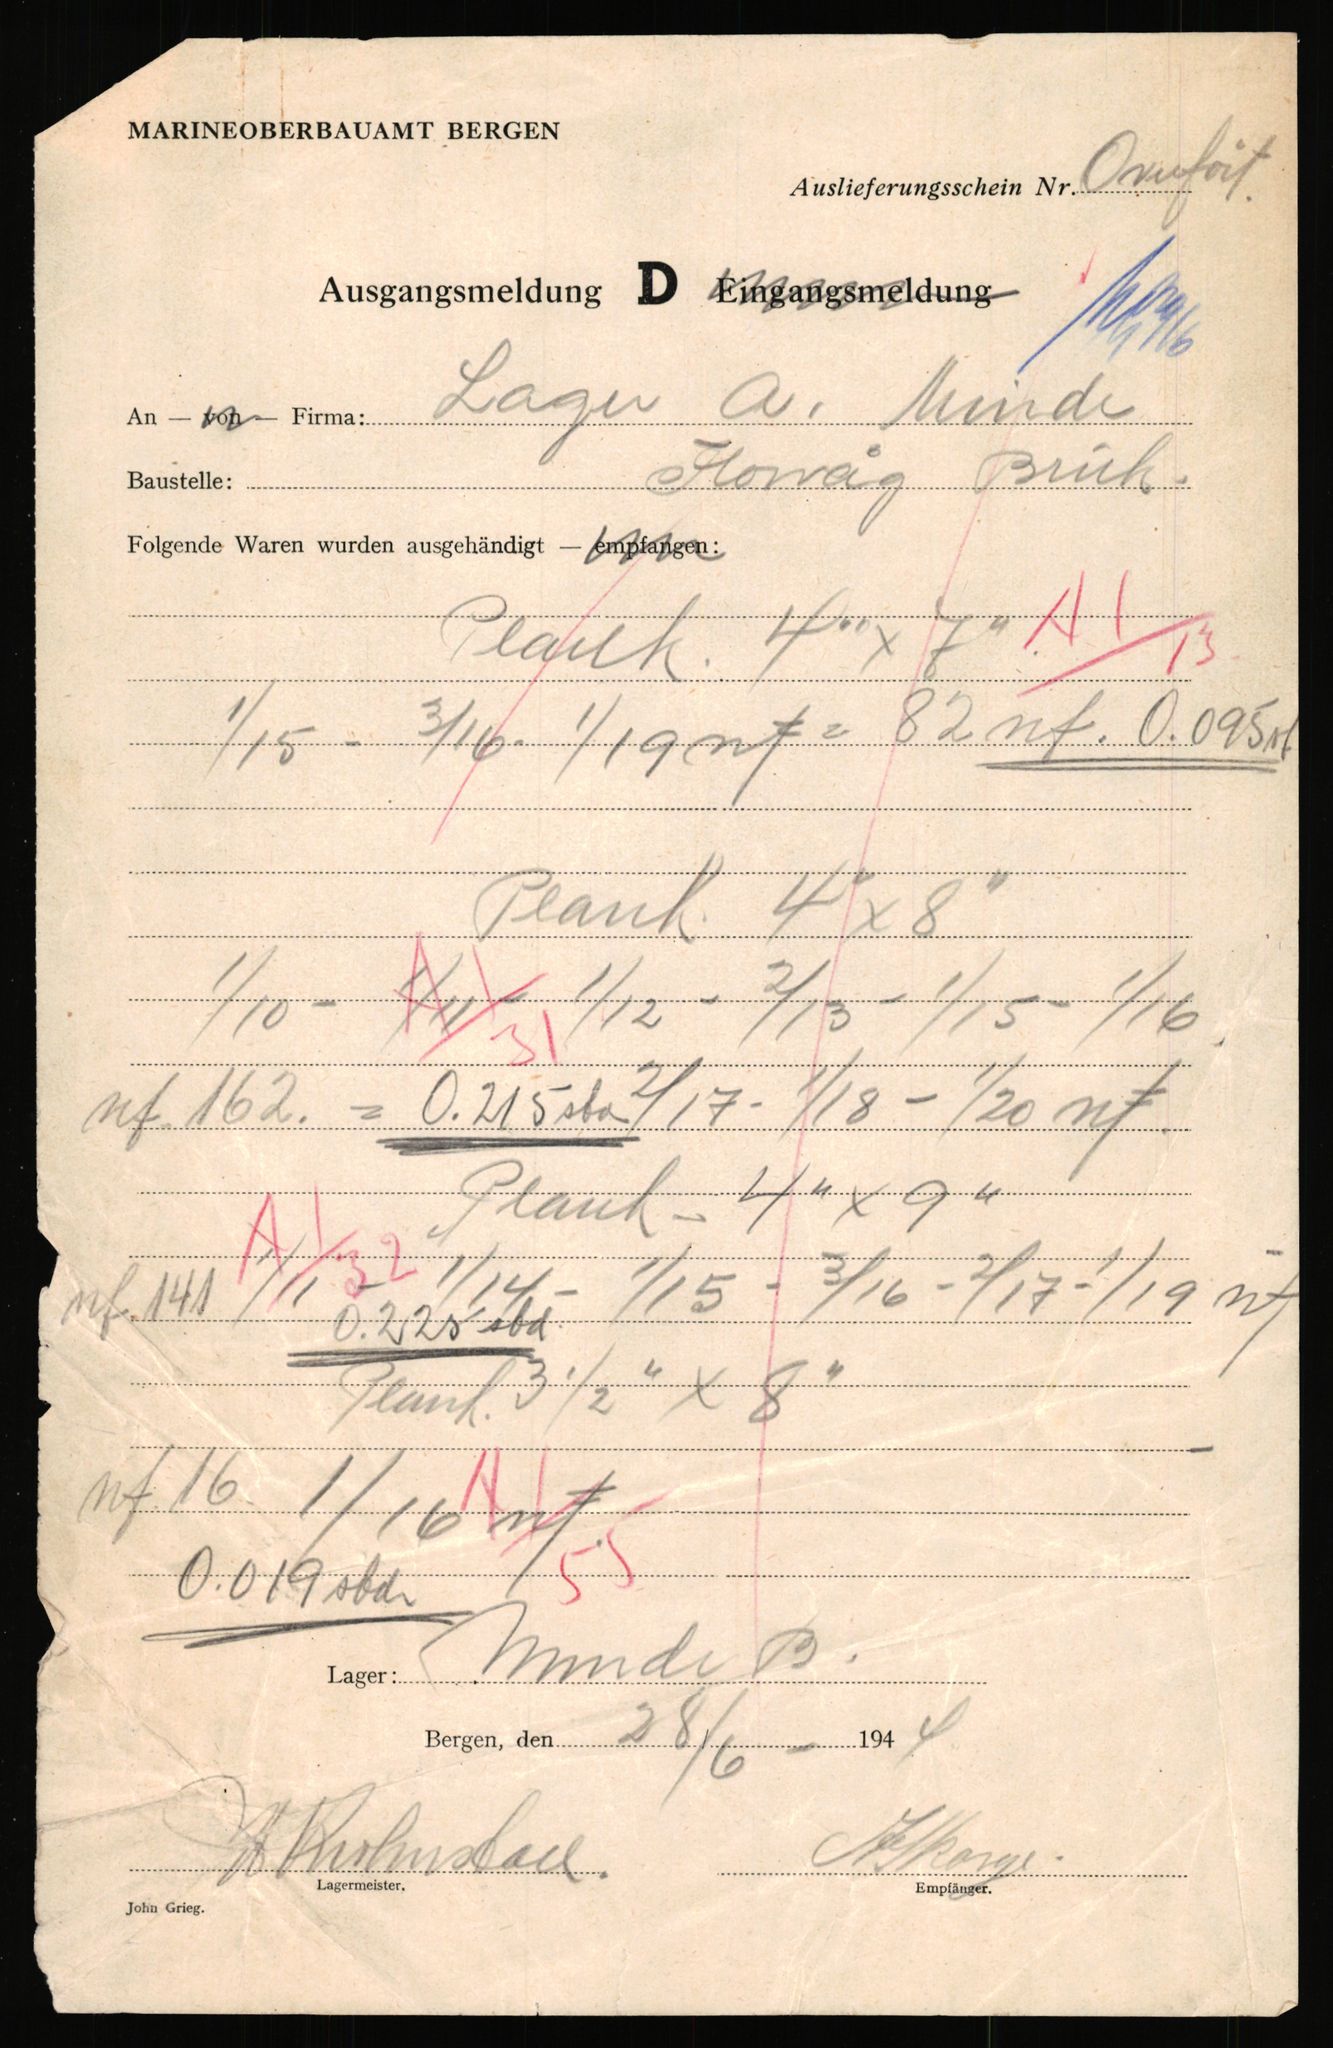 MARINEOBERBAUAMT BERGEN
Auslieferungsschein Nr. Overført.
Ausgangsmeldung D Eingangsmeldung
An — von — Firma: Lager A. Minde
Baustelle: Florvåg Brück.
Folgende Waren wurden ausgehändigt — empfangen:
Plank. 4" x 7" A 1/13
1/15 - 3/16 - 1/19 nf = 82 nf. 0.095
Plank. 4" x 8"
1/10 - 1/11 - 1/12 - 2/13 - 1/15 - 1/16
A 1/31
nf. 162. = 0.215 sbd 2/17 - 1/18 - 1/20 nf.
Plank - 4" x 9"
A 1/32
nf. 141 1/11 - 1/14 - 1/15 - 3/16 - 2/17 - 1/19 nf
0.225 sbd.
Plank. 3 1/2" x 8"
nf. 16. 1/16 nf. A 1/55
0.019 sbd
Lager: Minde B.
Bergen, den 28/6 - 1944
Lagermeister.
Empfänger.
John Grieg.